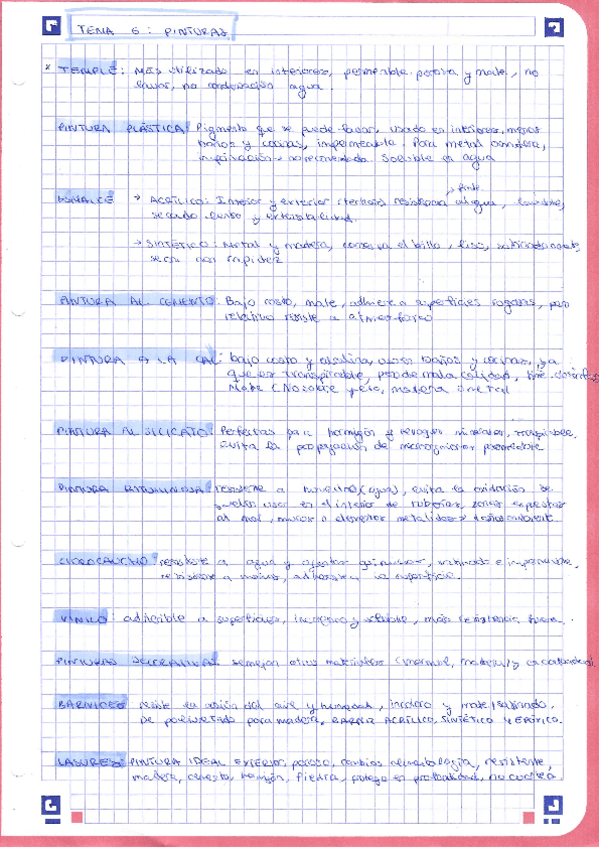 TEMA 6: PINTURAS
* TEMPLE: Más utilizado en interiores, permeable porosa y mate, no
lavar, no condensación agua.
PINTURA PLÁSTICA: Pigmento que se puede lavar, usado en interiores, menos
baños y cocinas, impermeable. Para metal o madera,
imprimación → no recomendada. Soluble en agua
ESMALTE → Acrílico: Interior y exterior resistencia al agua,
secado lento y
→ SINTÉTICO: Metal y madera, conserva el brillo, liso, satinado o mate,
seca con rapidez
PINTURA AL CEMENTO: Bajo costo, mate, adhiere a superficies rugosas, pero
relativo resiste a atmosférico
PINTURA A LA CAL: bajo costo y alcalina, usos baños y cocinas, ya
que es transpirable, pero de mala calidad,
Mate (No sobre yeso, madera o metal
PINTURA AL SILICATO: Perfectas para hormigón y revoques minerales, transpirable.
evita la propagación de microorganismos
PINTURA BITUMINOSA: resistente a humedad (agua), evita la oxidación. Se
suelen usar en el interior de tuberías, zonas expuestas
al mar, muros o elementos metálicos
CLOROCAUCHO: resistente a agua y agentes químicos, satinado e impermeable,
resistente a mohos, adherencia la superficie.
VINILO: adherible a superficies, incoloro y soluble, más resistencia
PINTURAS DECORATIVAS: semejan otros materiales (mármol, madera)
BARNICES: resiste la acción del aire y humedad, incoloro y mate/satinado.
De poliuretado para madera, BARNIZ ACRÍLICO, SINTÉTICO Y EPÓTICO.
LASURES: PINTURA IDEAL EXTERIOR, poroso, cambios climatología, resistente,
madera, cemento, hormigón, piedra, protege en profundidad, no cuartea